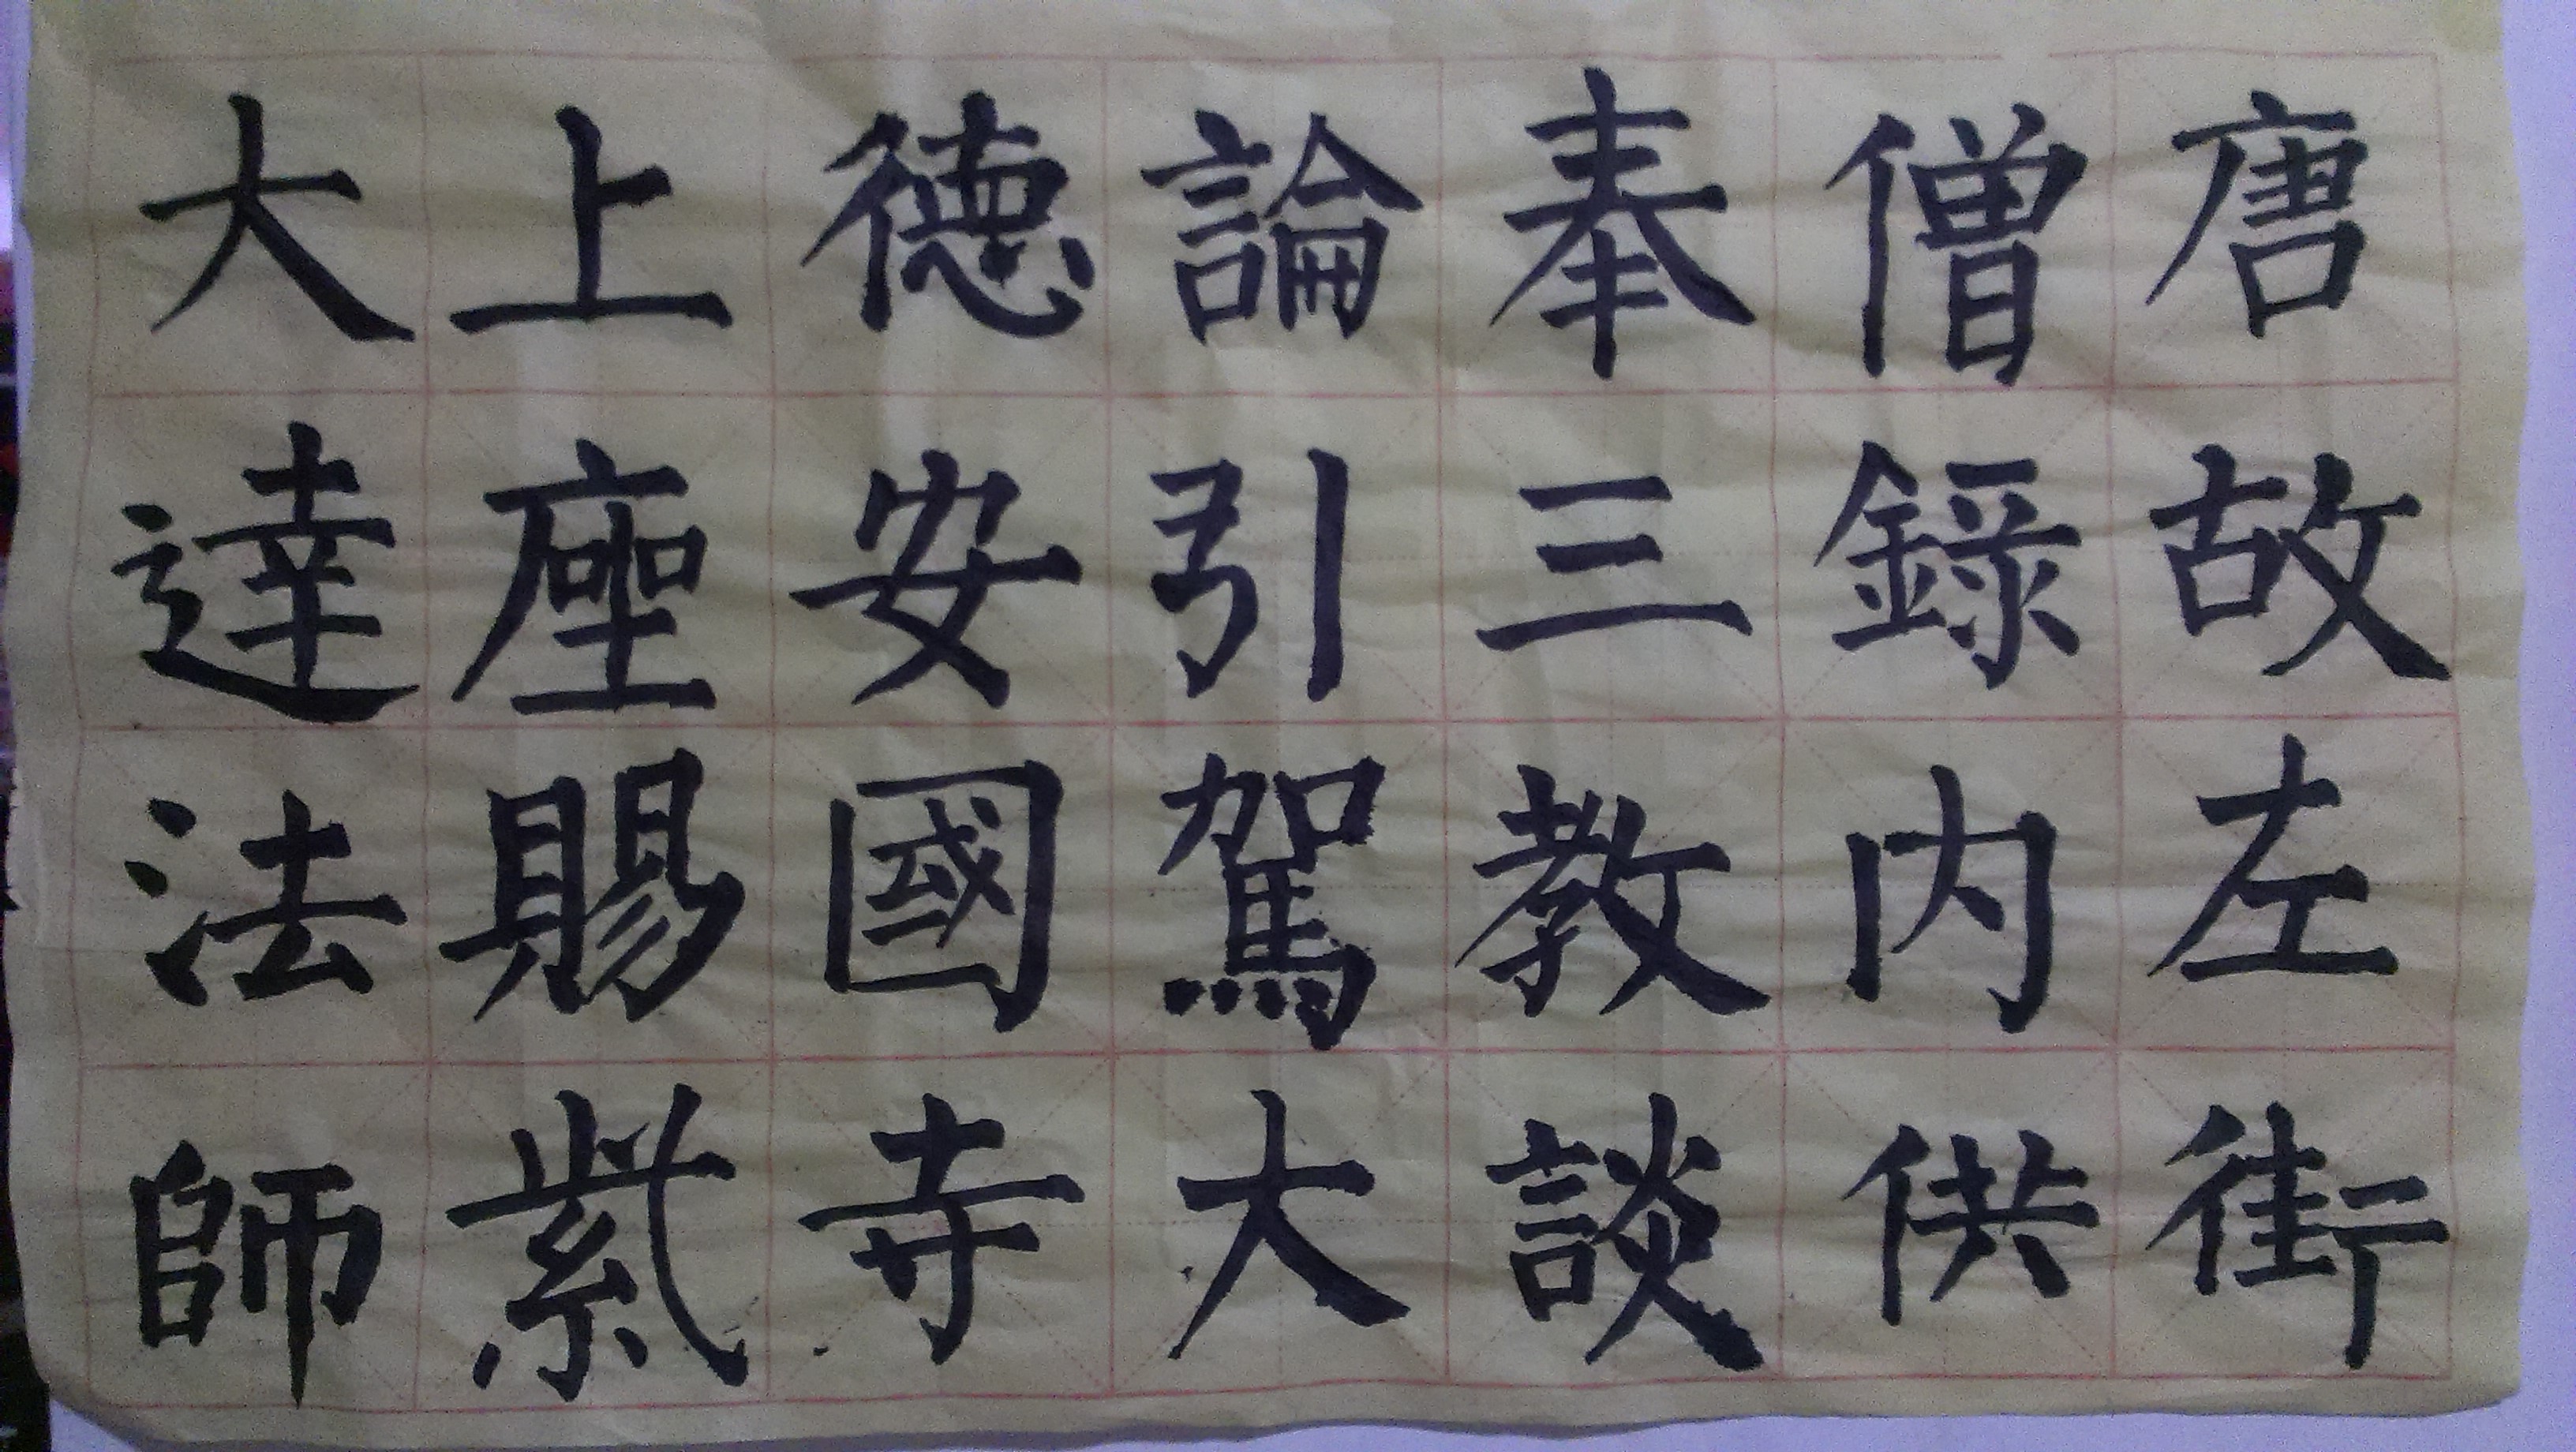 唐故左街
僧録内供
奉三教談
論引駕大
德安國寺
上座賜紫
大達法師